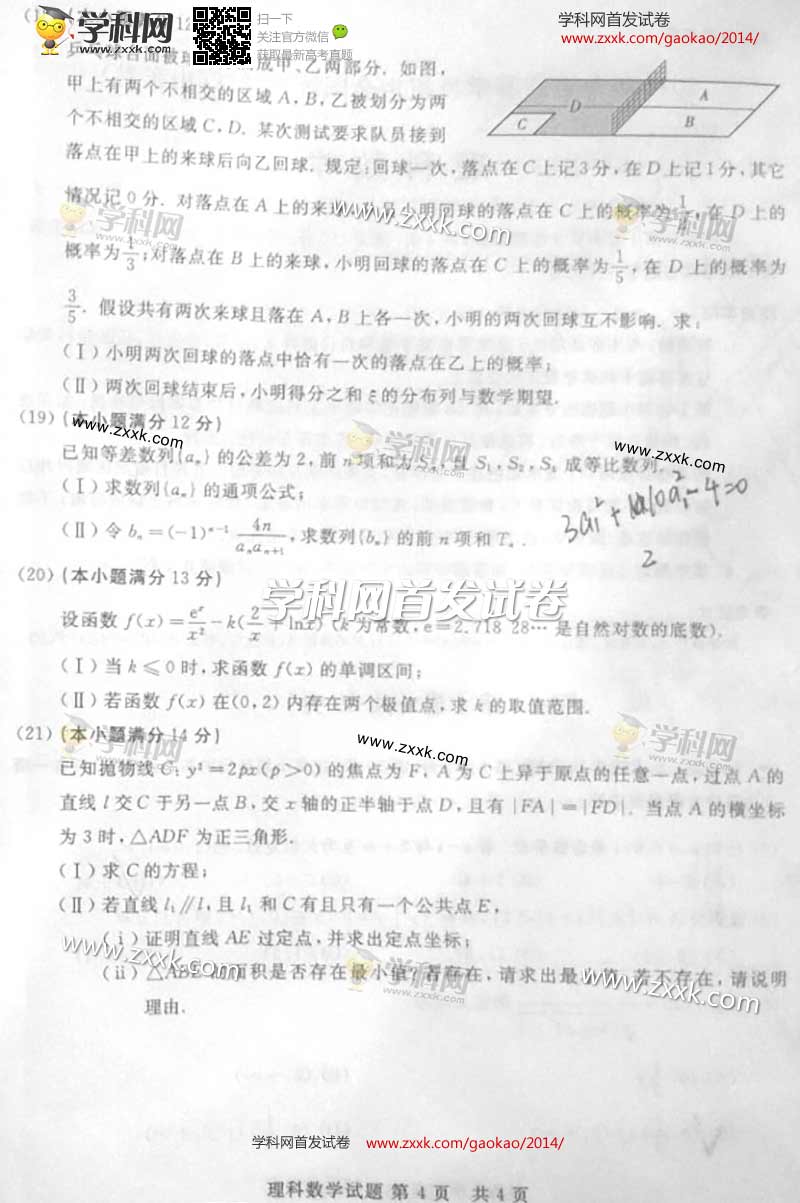 学科网首发试卷
www.zxxk.com/gaokao/2014/
扫一下
关注官方微信
获取最新高考真题
学科网
乒乓球台面被球 成甲、乙两部分.如图,
甲上有两个不相交的区域 A,B,乙被划分为两
个不相交的区域 C,D.某次测试要求队员接到
落点在甲上的来球后向乙回球.规定:回球一次,落点在 C 上记 3 分,在 D 上记 1 分,其它
情况记 0 分.对落点在 A 上的来球,队员小明回球的落点在 C 上的概率为 ,在 D 上的
概率为1/3;对落点在 B 上的来球,小明回球的落点在 C 上的概率为1/5,在 D 上的概率为
3/5.假设共有两次来球且落在 A,B 上各一次,小明的两次回球互不影响.求:
(Ⅰ)小明两次回球的落点中恰有一次的落点在乙上的概率;
(Ⅱ)两次回球结束后,小明得分之和 ξ 的分布列与数学期望.
(19)(本小题满分 12 分)
已知等差数列{aₙ}的公差为 2,前 n 项和为 Sₙ,且 S₁,S₂,S₄ 成等比数列.
(Ⅰ)求数列{aₙ}的通项公式;
(Ⅱ)令 bₙ=(-1)ⁿ⁻¹ 4n/(aₙaₙ₊₁),求数列{bₙ}的前 n 项和 Tₙ.
(20)(本小题满分 13 分)
设函数 f(x)=eˣ/x²-k(2/x+lnx)(k 为常数,e=2.718 28… 是自然对数的底数).
(Ⅰ)当 k⩽0 时,求函数 f(x) 的单调区间;
(Ⅱ)若函数 f(x) 在(0,2)内存在两个极值点,求 k 的取值范围.
(21)(本小题满分 14 分)
已知抛物线 C:y²=2px(p>0)的焦点为 F,A 为 C 上异于原点的任意一点,过点 A 的
直线 l 交 C 于另一点 B,交 x 轴的正半轴于点 D,且有|FA|=|FD|.当点 A 的横坐标
为 3 时,△ADF 为正三角形.
(Ⅰ)求 C 的方程;
(Ⅱ)若直线 l₁∥l,且 l₁ 和 C 有且只有一个公共点 E,
(ⅰ)证明直线 AE 过定点,并求出定点坐标;
(ⅱ)△ABE 的面积是否存在最小值?若存在,请求出最小值,若不存在,请说明
理由.
学科网首发试卷
www.zxxk.com/gaokao/2014/
理科数学试题 第 4 页 共 4 页